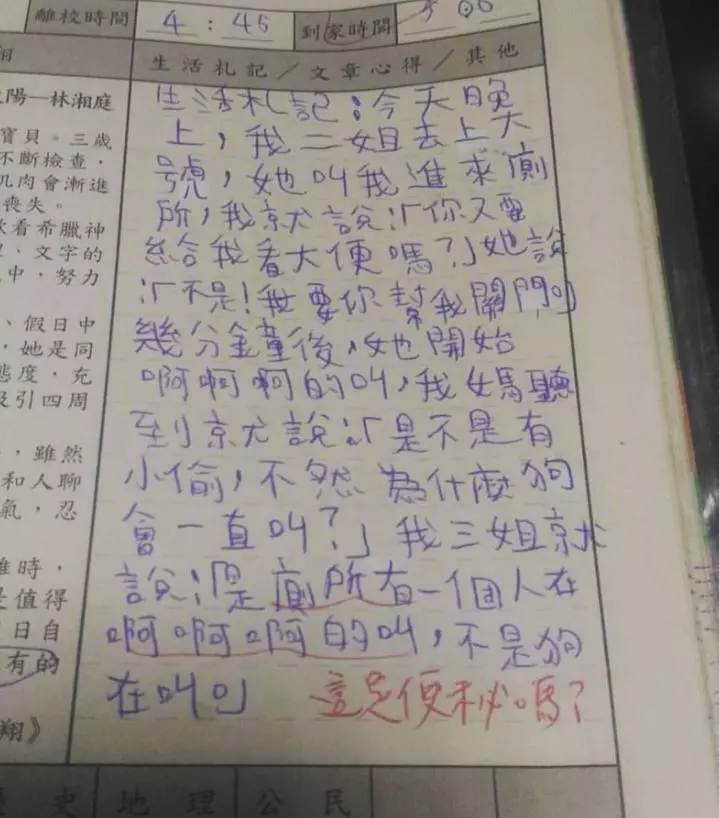 離校時間 4：45 到家時間
生活札記／文章心得／其他
陽—林湘庭
寶貝。三歲
不斷檢查，
肌肉會漸進
喪失。
欢看希臘神
、文字的
中，努力
、假日中
，她是同
態度，充
吸引四周
，雖然
和人聊
氣，忍
難時，
是值得
日自
有的
翔》
生活札記：今天晚
上，我二姐去上大
號，她叫我進求廁
所，我就說：「你又要
給我看大便嗎？」她說
：「不是！我要你幫我關門」
幾分鐘後，她開始
啊啊啊的叫，我媽聽
到就說：「是不是有
小偷，不然為什麼狗
會一直叫？」我三姐就
說：「是廁所有一個人在
啊啊啊的叫，不是狗
在叫」 這是便秘嗎？
史 地理 公民